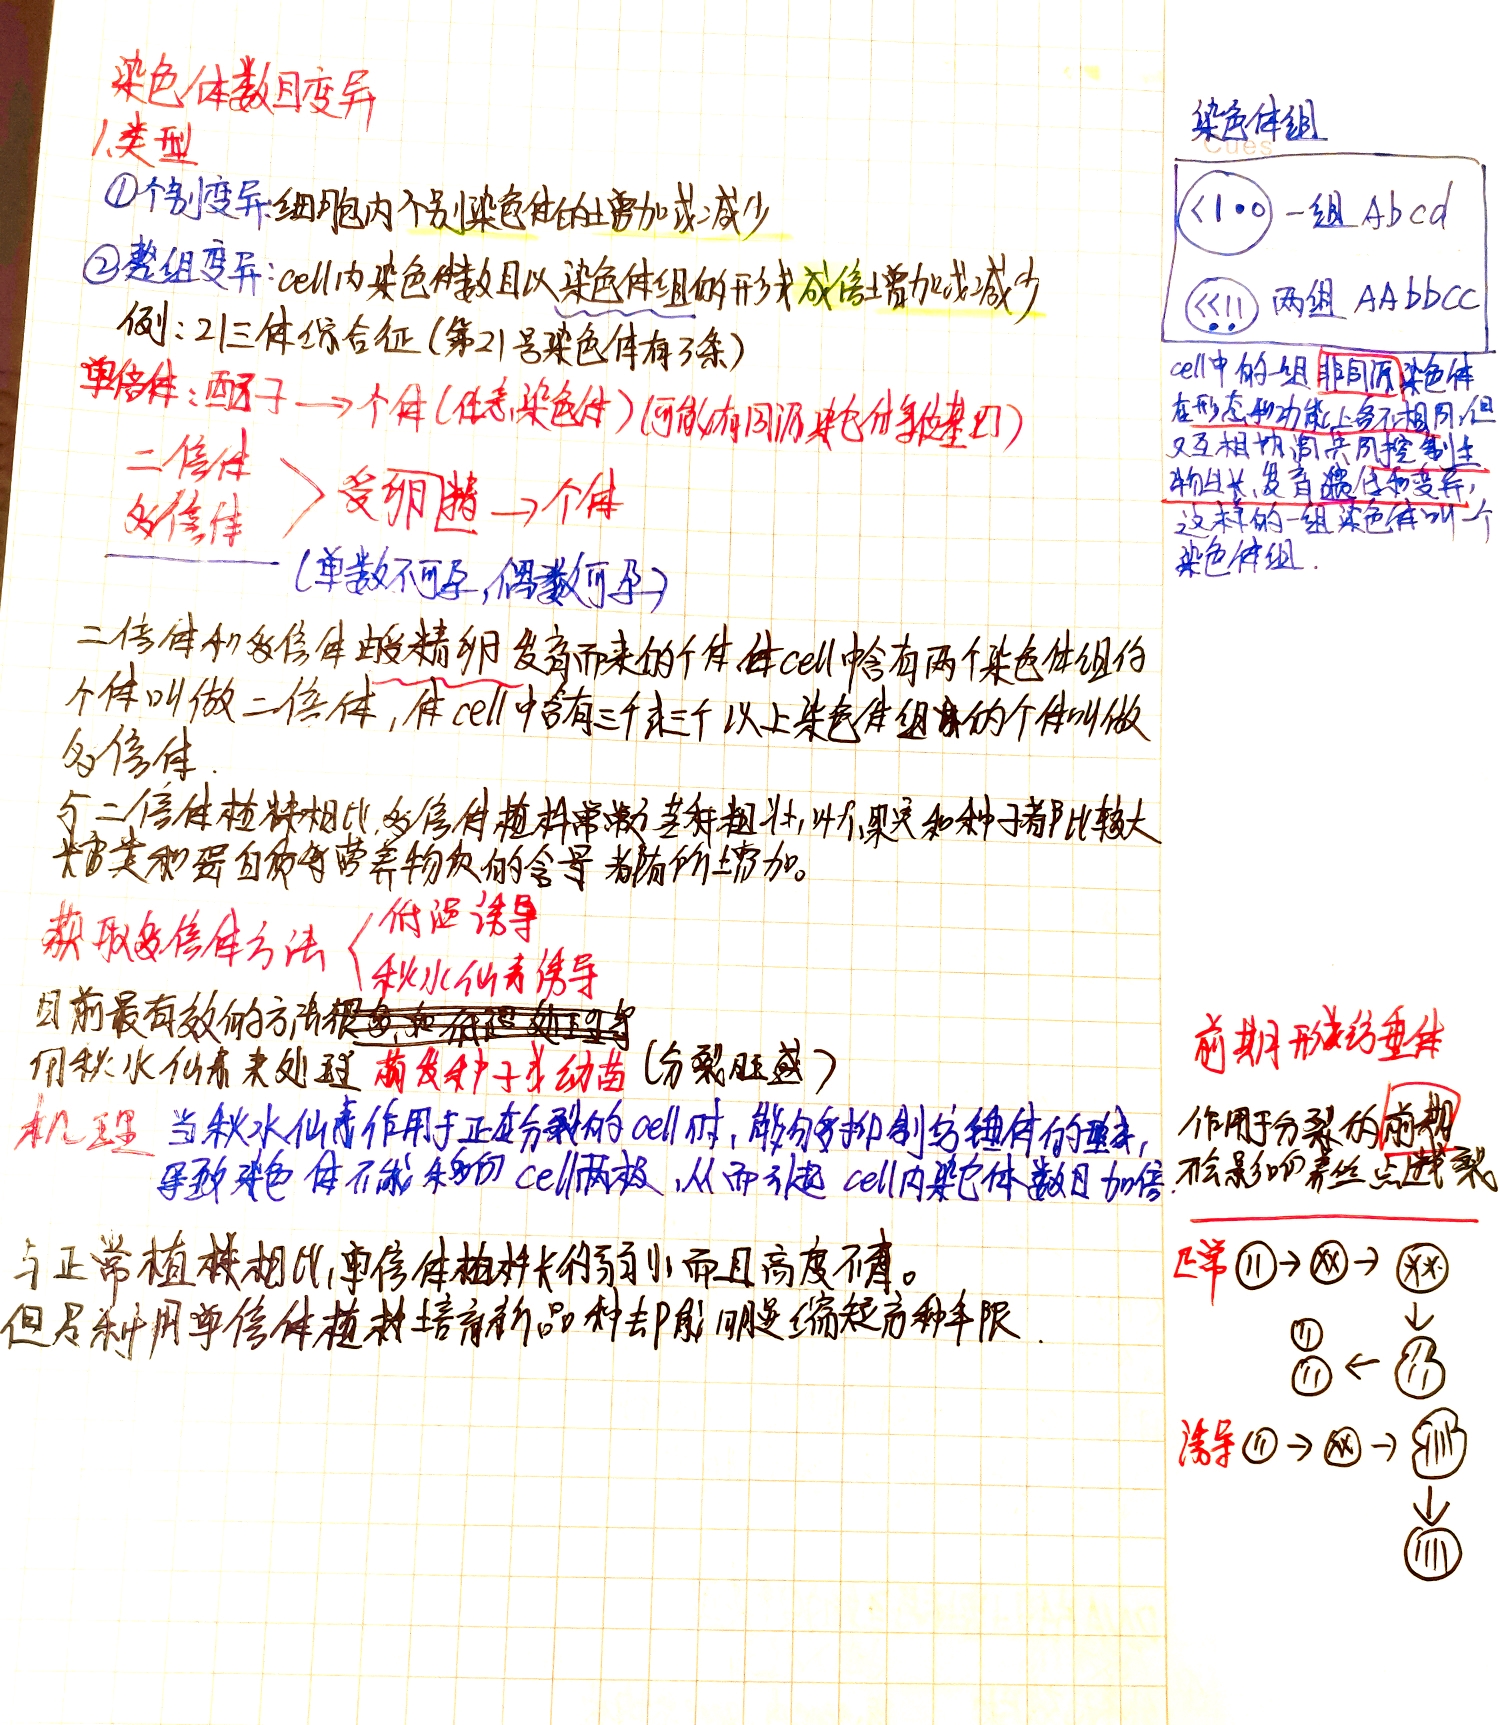 染色体数目变异
1.类型
①个别变异:细胞内个别染色体的增加或减少
②整组变异:cell内染色体数目以染色体组的形式成倍增加或减少
例:21三体综合征(第21号染色体有3条)
单倍体:配子→个体(任意染色体)(可能有同源染色体等位基因)
二倍体
多倍体
受精卵→个体
(单数不可孕,偶数可孕)
二倍体和多倍体由受精卵发育而来的个体.体cell中含有两个染色体组的
个体叫做二倍体,体cell中含有三个或三个以上染色体组的个体叫做
多倍体.
与二倍体植株相比,多倍体植株常常茎秆粗壮,叶片、果实和种子都比较大
糖类和蛋白质等营养物质的含量都有所增加。
获取多倍体方法
低温诱导
秋水仙素诱导
目前最有效的方法是
用秋水仙素来处理萌发种子或幼苗(分裂旺盛)
机理 当秋水仙素作用于正在分裂的cell时,能够抑制纺锤体的形成,
导致染色体不能移向cell两极,从而引起cell内染色体数目加倍.
与正常植株相比,单倍体植株长得弱小而且高度不育。
但是利用单倍体植株培育新品种却能明显缩短育种年限.
染色体组
Cues
一组 Abcd
两组 AAbbCC
cell中的一组非同源染色体
在形态和功能上各不相同,但
又互相协调共同控制生
物生长、发育遗传和变异,
这样的一组染色体叫一个
染色体组.
前期形成纺锤体
作用于分裂的前期
不会影响着丝点断裂
正常
诱导